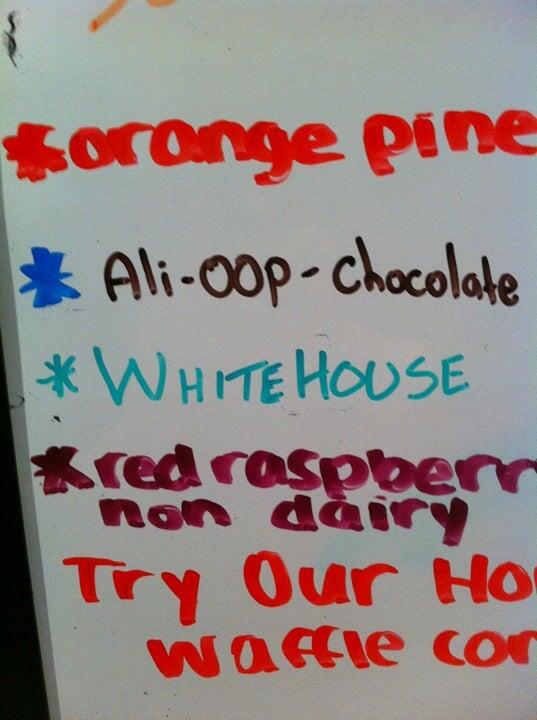 *orange pine
* Ali-OOP-Chocolate
* WHITEHOUSE
*red raspberr
non dairy
Try Our Ho
waffle con